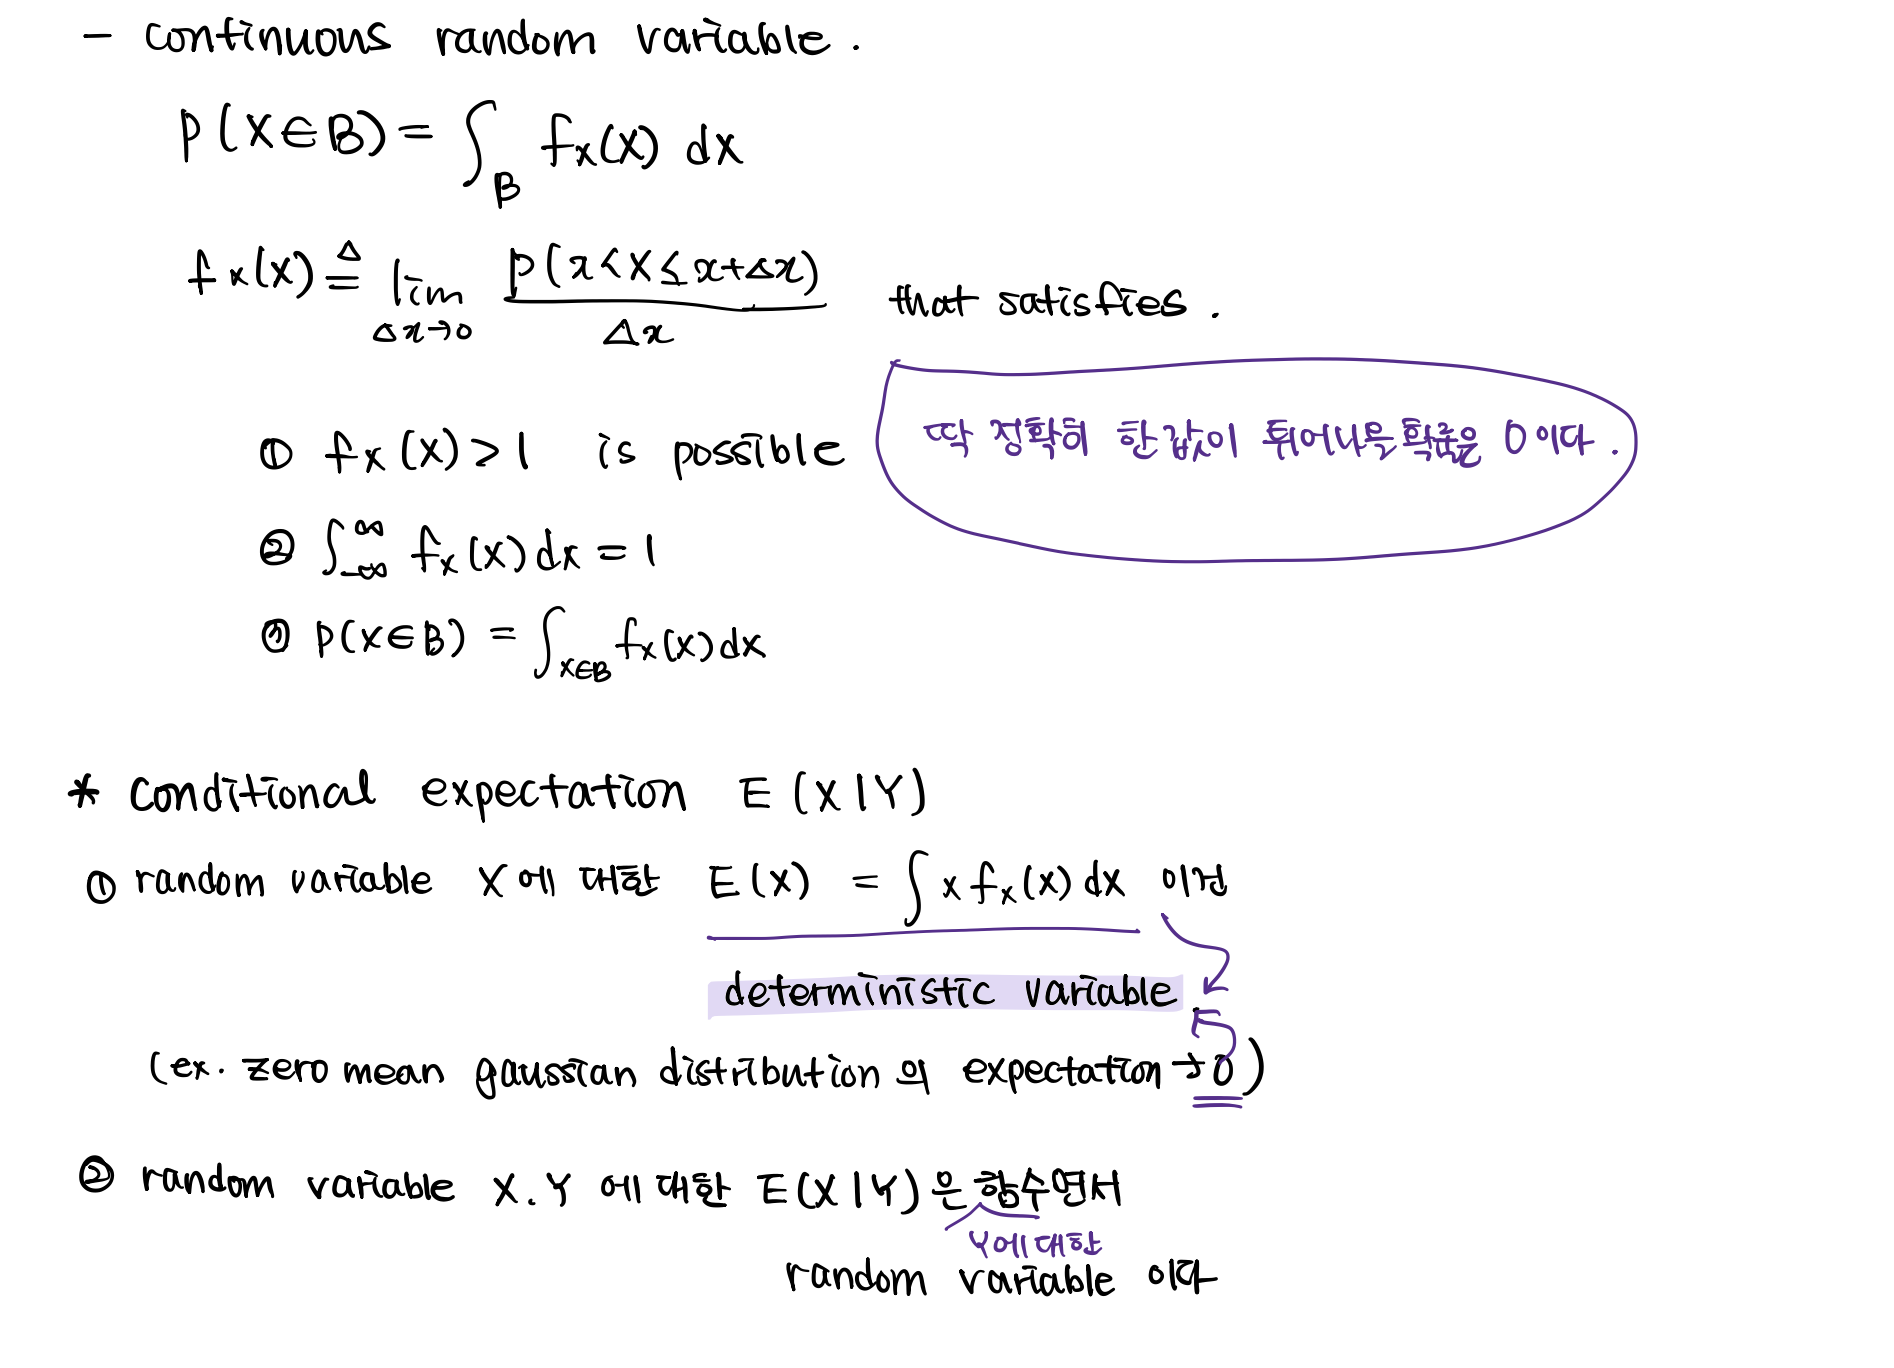 - continuous random variable.
P(X∈B) = ∫_B fx(x) dx
fx(x) ≜ lim_{Δx→0} P(x<X≤x+Δx) / Δx that satisfies.
① fx(x) > 1 is possible
딱 정확히 한 값이 튀어나올 확률은 0이다.
② ∫_{-∞}^{∞} fx(x) dx = 1
③ P(X∈B) = ∫_{x∈B} fx(x) dx
* conditional expectation E(X|Y)
① random variable X에 대한 E(x) = ∫ x fx(x) dx 이건
deterministic variable.
(ex. zero mean gaussian distribution의 expectation → 0)
② random variable X. Y에 대한 E(X|Y)은 함수면서
Y에 대한
random variable 이다